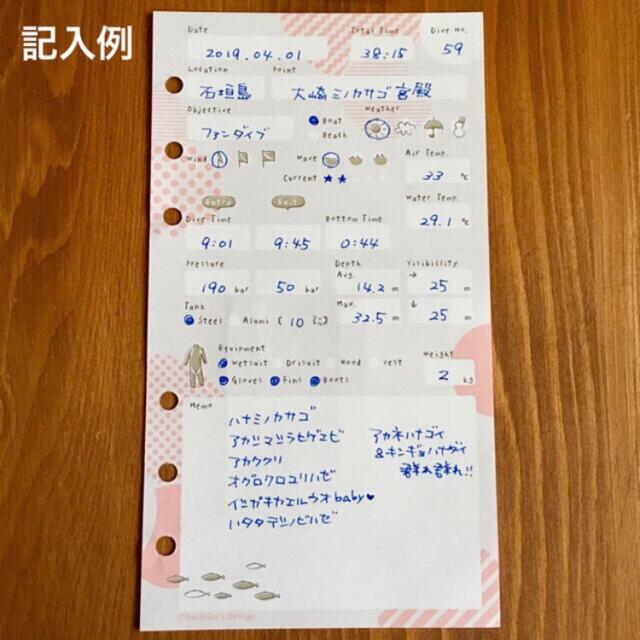 記入例
Date Total Time Dive No.
2019.04.01 38:15 59
Location Point
石垣島 大崎ミノカサゴ宮殿
Objective Boat Weather
ファンダイブ Beach
Wind Wave Air Temp.
Current ★★ 33 ℃
Entry Exit Water Temp.
Dive Time Bottom Time 29.1 ℃
9:01 9:45 0:44
Pressure Depth Visibillity
Avg. →
190 bar 50 bar 14.2 m 25 m
Tank Max. ↓
Steel Alumi [ 10 ] 32.5 m 25 m
Equipment Weight
Wetsuit Drisuit Hood Vest
Gloves Fins Boots 2 kg
Memo
ハナミノカサゴ
アカシマシラヒゲエビ アカネハナゴイ
アカククリ &キンギョハナダイ
オグロクロユリハゼ 群れ群れ!!
イシガキカエルウオbaby♥
ハタタテシノビハゼ
©hachiko's Design